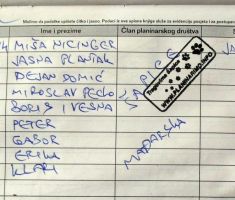 Molimo da podatke upišete čitko i jasno. Podaci iz ove upisne knjige služe za evidenciju posjeta i za
Ime i prezime
Član planinarskog društva
MIŠA NICINGER
JASNA PLANTAK
DEJAN DOMIĆ
MIROSLAV PECKO
BORIS I VESNA
PETER
GABOR
ERIKA
KLARI
ŠAPICE
MAĐARSKA